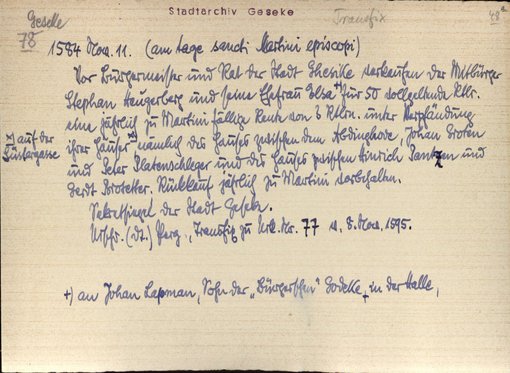 Stadtarchiv Geseke
Geseke
Transfix
48
78
1584 Nov. 11. (am tage sancti Martini episcopi)
Vor Bürgermeister und Rat der Stadt Ghesike verkaufen der Mitbürger
Stephan Haugerberg und seine Ehefrau Elsa +) für 50 vollgeltende Rtlr.
eine jährlich zu Martini fällige Rente von 3 Rtlrn. unter Verpfändung
x) auf der
Lüntergasse
ihrer Häuser x) nämlich des Hauses zwischen dem Abdinghove, Johan Groten
und Peter Platenschleger und des Hauses zwischen Hinrich und
Gerdt. Rückkauf jährlich zu Martini vorbehalten.
Sekretsiegel der Stadt Geseke.
Urschr. (dt.) Perg., Transfix zu Urk. Nr. 77 v. 8. Nov. 1595.
+) an Johan Lapman, Sohn der „Bürgerschen“ Godeke, in der Halle,